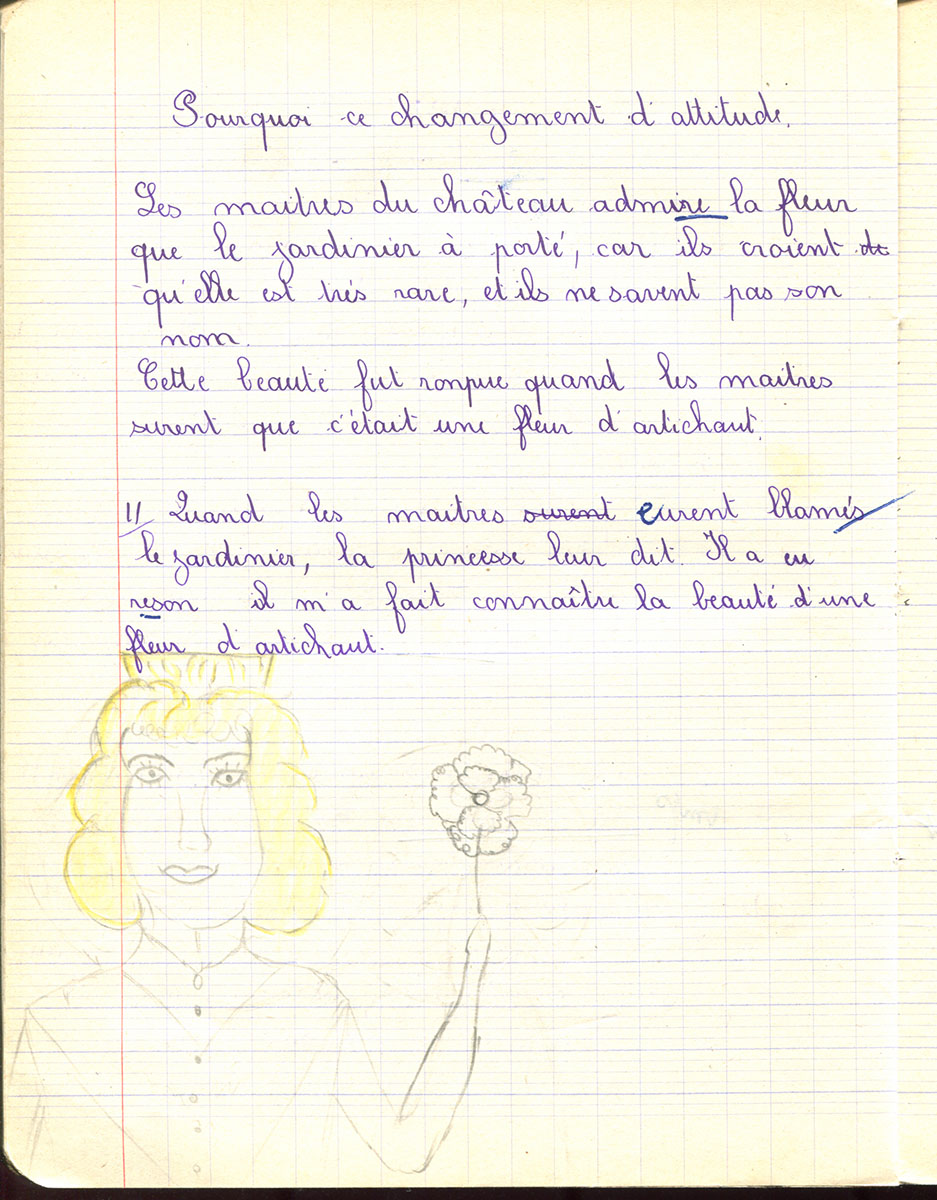 Pourquoi ce changement d'attitude.
Les maitres du château admire la fleur
que le jardinier à porté, car ils croient de
qu'elle est trés rare, et ils ne savent pas son
nom.
Cette beauté fut ronpue quand les maitres
surent que c'était une fleur d'artichaut.
1/ Quand les maitres surent eurent blamés
le jardinier, la princesse leur dit. Il a eu
reson il m'a fait connaître la beauté d'une
fleur d'artichaut.